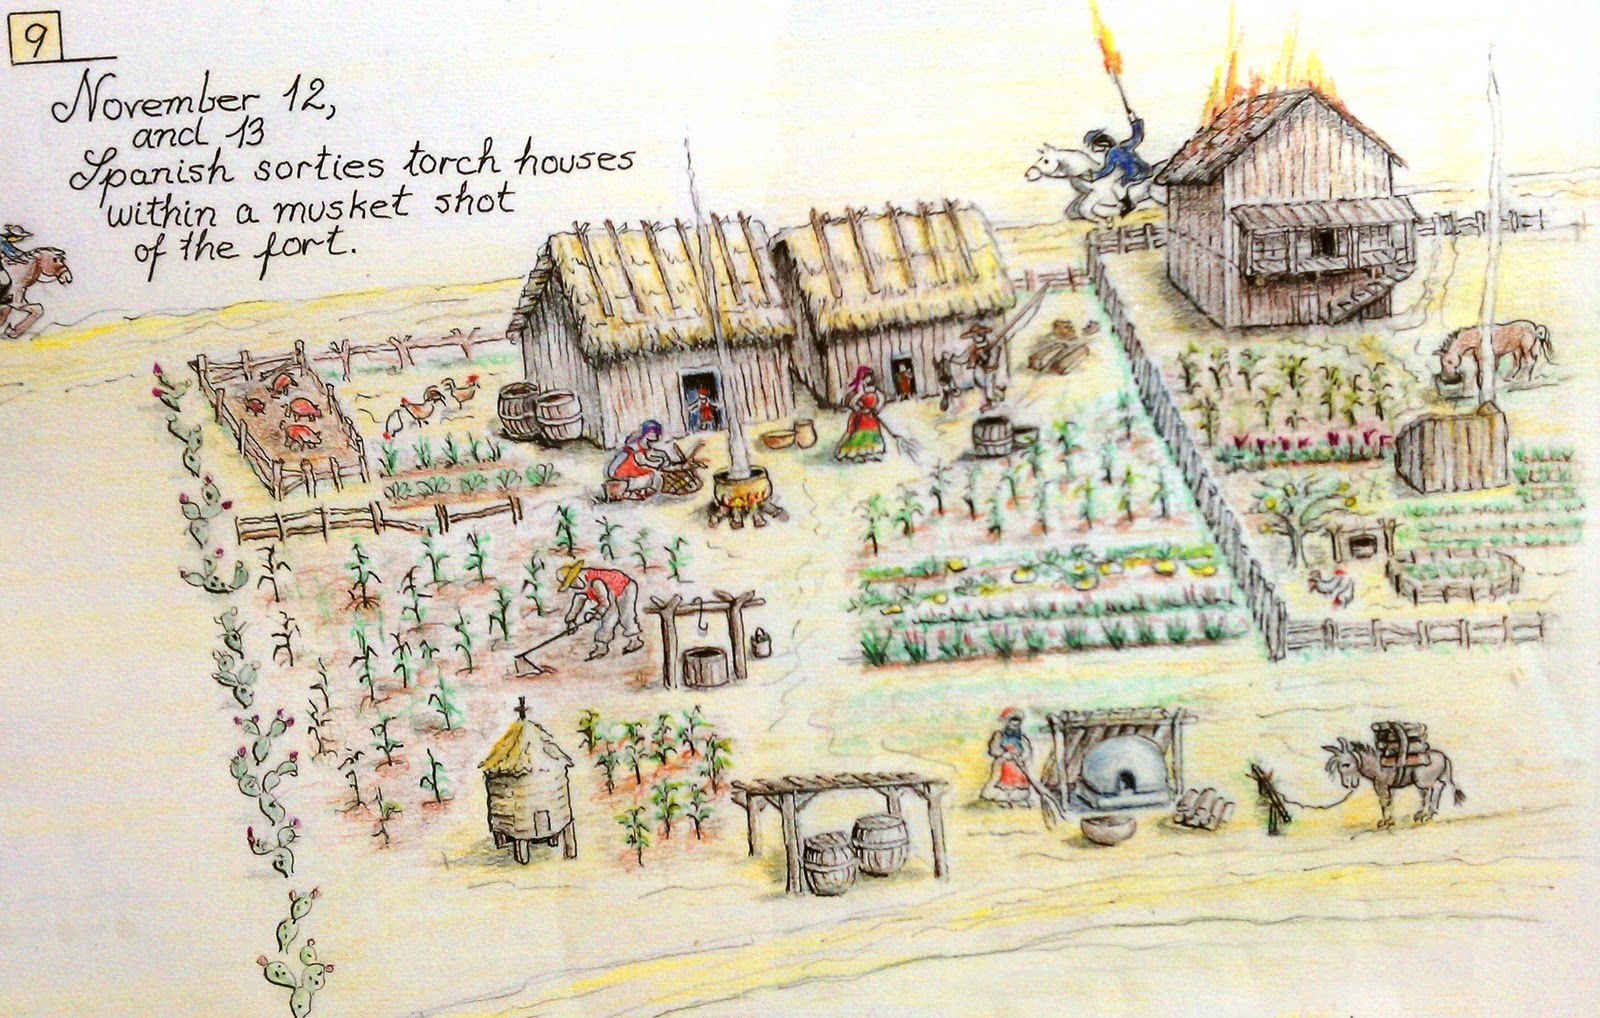 9
November 12,
and 13
Spanish sorties torch houses
within a musket shot
of the fort.